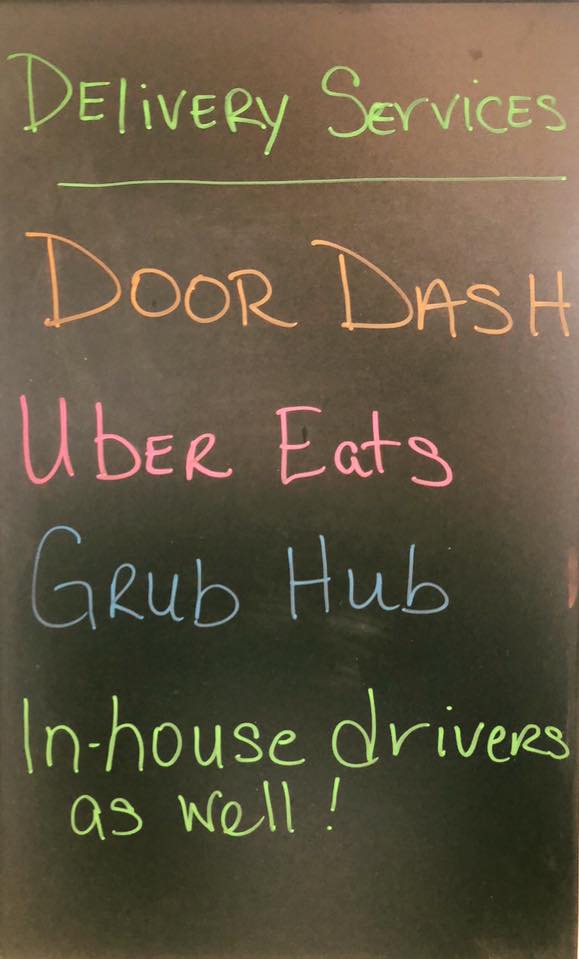 Delivery Services
Door Dash
Uber Eats
Grub Hub
In-house drivers
as well!